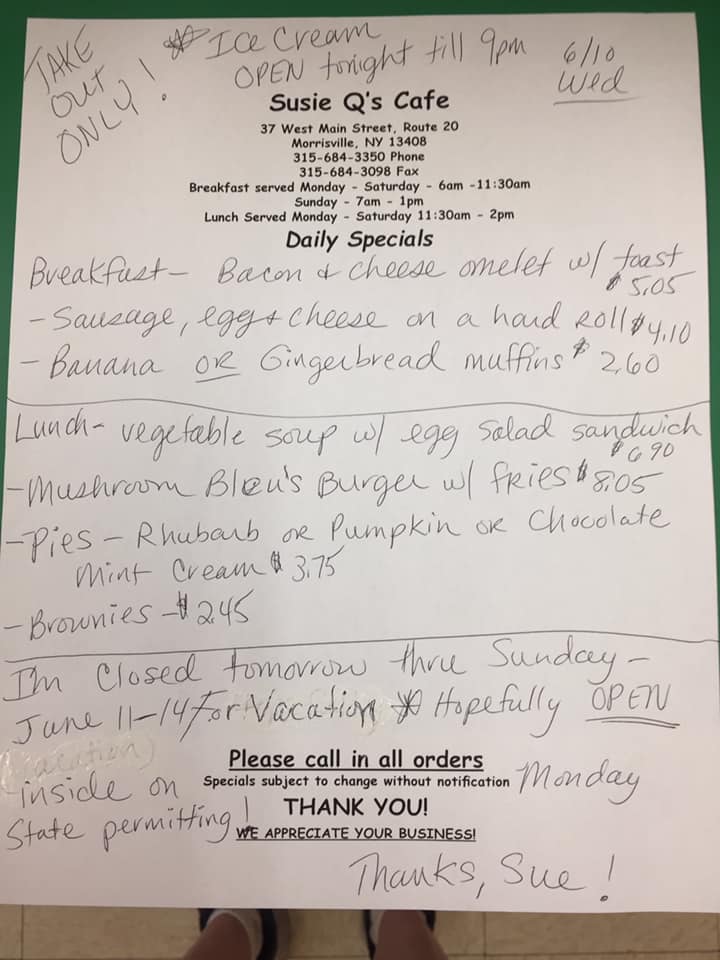 TAKE
OUT
ONLY!
Ice Cream
OPEN tonight till 9pm
6/10
Wed
Susie Q's Cafe
37 West Main Street, Route 20
Morrisville, NY 13408
315-684-3350 Phone
315-684-3098 Fax
Breakfast served Monday - Saturday - 6am -11:30am
Sunday - 7am - 1pm
Lunch Served Monday - Saturday 11:30am - 2pm
Daily Specials
Breakfast- Bacon & cheese omelet w/ toast
$5.05
- Sausage, egg & cheese on a hard Roll $4.10
- Banana OR Gingerbread muffins $2.60
Lunch- vegetable soup w/ egg salad sandwich
$6.90
- Mushroom Bleu's Burger w/ fries $8.05
- Pies - Rhubarb or Pumpkin or Chocolate
Mint Cream $3.75
- Brownies - $2.45
I'm Closed tomorrow thru Sunday-
June 11-14 For Vacation Hopefully OPEN
inside on Monday
State permitting!
Please call in all orders
Specials subject to change without notification
THANK YOU!
WE APPRECIATE YOUR BUSINESS!
Thanks, Sue!